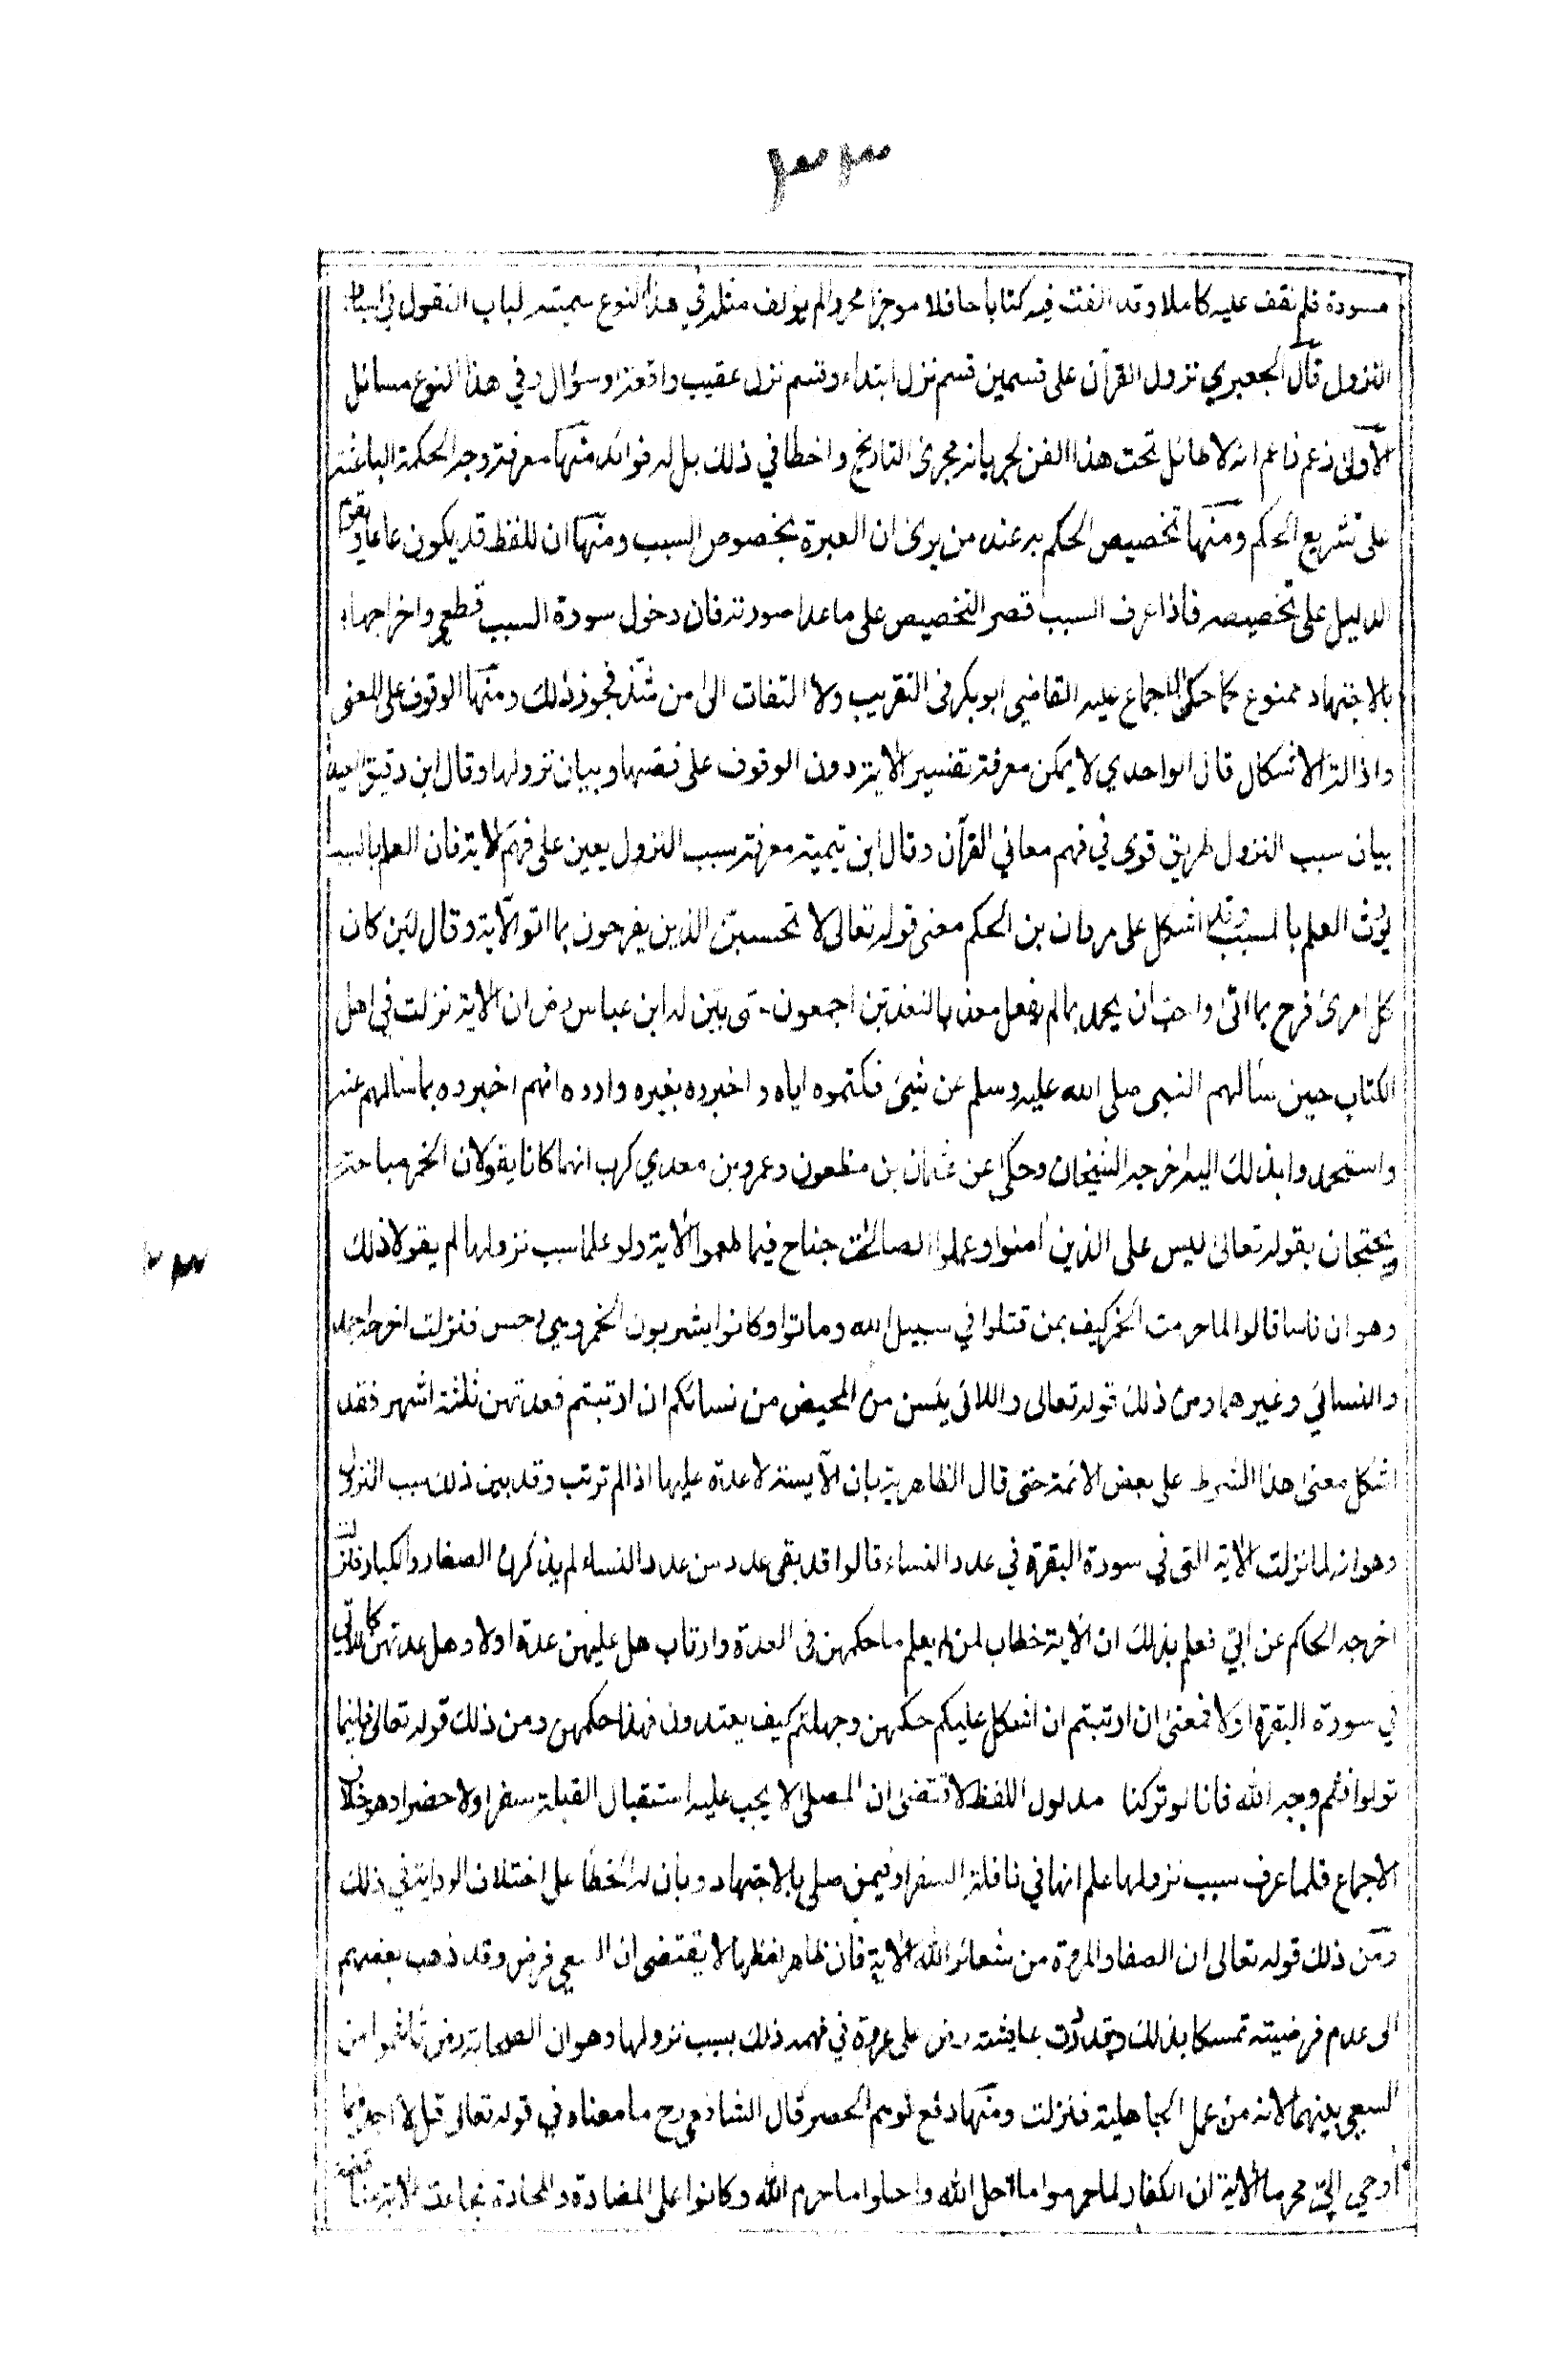 ٣٣
مسودة فلم نقف عليه كاملا وقد الفت فيه كتابا حافلا موجزا محررا لم يؤلف مثله في هذا النوع سميته لباب النقول في اسباب
النزول قال الجعبري نزول القرآن على قسمين قسم نزل ابتداء وقسم نزل عقيب واقعة او سؤال وفي هذا النوع مسائل
الاولى زعم زاعم انه لا طائل تحت هذا الفن لجريانه مجرى التاريخ واخطأ في ذلك بل له فوائد منها معرفة وجه الحكمة الباعثة
على تشريع الحكم ومنها تخصيص الحكم به عند من يرى ان العبرة بخصوص السبب ومنها ان للفظ قد يكون عاما ويقوم
الدليل على تخصيصه فاذا عرف السبب قصر التخصيص على ما عدا صورته فان دخول سورة السبب قطعي واخراجها
بالاجتهاد ممنوع كما حكى الاجماع عليه القاضي ابو بكر فى التقريب ولا التفات الى من شذ فجوز ذلك ومنها الوقوف على المعنى
واذالة الاشكال قال الواحدي لا يمكن معرفة تفسير الآية دون الوقوف على قصتها وبيان نزولها وقال ابن دقيق العيد
بيان سبب النزول طريق قوى في فهم معاني القرآن وقال ابن تيمية معرفة سبب النزول يعين على فهم الآية فان العلم بالسبب
يورث العلم بالمسبب وقد اشكل على مروان بن الحكم معنى قوله تعالى لا تحسبن الذين يفرحون بما اتوا الآية وقال لئن كان
كل امرئ فرح بما اتى واحب ان يحمد بما لم يفعل معذبا لنعذبن اجمعون حتى بين له ابن عباس رض ان الآية نزلت في اهل
الكتاب حين سألهم النبى صلى الله عليه وسلم عن شيئ فكتموه اياه واخبروه بغيره واروه انهم اخبروه بما سألهم عنه
واستحمدوا بذلك اليه اخرجه الشيخان وحكى عن عثمان بن مظعون وعمرو بن معدي كرب انهما كانا يقولان الخمر مباحة
ويحتجان بقوله تعالى ليس على الذين اٰمنوا وعملوا الصالحٰت جناح فيما طعموا الآية ولو علما سبب نزولها لم يقولا ذلك
وهو ان ناسا قالوا لما حرمت الخمر كيف بمن قتلوا في سبيل الله وماتوا وكانوا يشربون الخمر وهي رجس فنزلت اخرجه احمد
والنسائي وغيرهما ومن ذلك قوله تعالى واللائى يئسن من المحيض من نسائكم ان ارتبتم فعدتهن ثلثة اشهر فقد
اشكل معنى هذا الشرط على بعض الائمة حتى قال الظاهرية بان الآيسة لا عدة عليها اذا لم ترتب وقد بين ذلك سبب النزول
وهو انه لما نزلت الآية التى في سورة البقرة في عدد النساء قالوا قد بقى عدد من عدد النساء لم يذكرن الصغار والكبار فنزلت
اخرجه الحاكم عن ابيّ فعلم بذلك ان الآية خطاب لمن لم يعلم ما حكمهن فى العدة وارتاب هل عليهن عدة اولا وهل عدتهن كاللاتي
في سورة البقرة اولا فمعنى ان ارتبتم ان اشكل عليكم حكمهن وجهلتم كيف يعتدون فهذا حكمهن ومن ذلك قوله تعالى فاينما
تولوا فثم وجه الله فانا لو تركنا مدلول اللفظ لاقتضى ان المصلى لا يجب عليه استقبال القبلة سفرا ولا حضرا وهو خلاف
الاجماع فلما عرف سبب نزولها علم انها في نافلة السفر او فيمن صلى بالاجتهاد وبان له الخطأ على اختلاف الرواية في ذلك
ومن ذلك قوله تعالى ان الصفا والمروة من شعائر الله الآية فان ظاهر لفظها لا يقتضى ان السعي فرض وقد ذهب بعضهم
الى عدم فرضيته تمسكا بذلك وقد ردت عايشة رض على عروة في فهمه ذلك بسبب نزولها وهو ان الصحابة رض تأثموا من
السعي بينهما لانه من عمل الجاهلية فنزلت ومنها دفع توهم الحصر قال الشافعى رح ما معناه في قوله تعالى قل لا اجد فيما
أوحي اليّ محرما الآية ان الكفار لما حرموا ما احل الله واحلوا ما حرم الله وكانوا على المضادة والمحادة فجاءت الآية